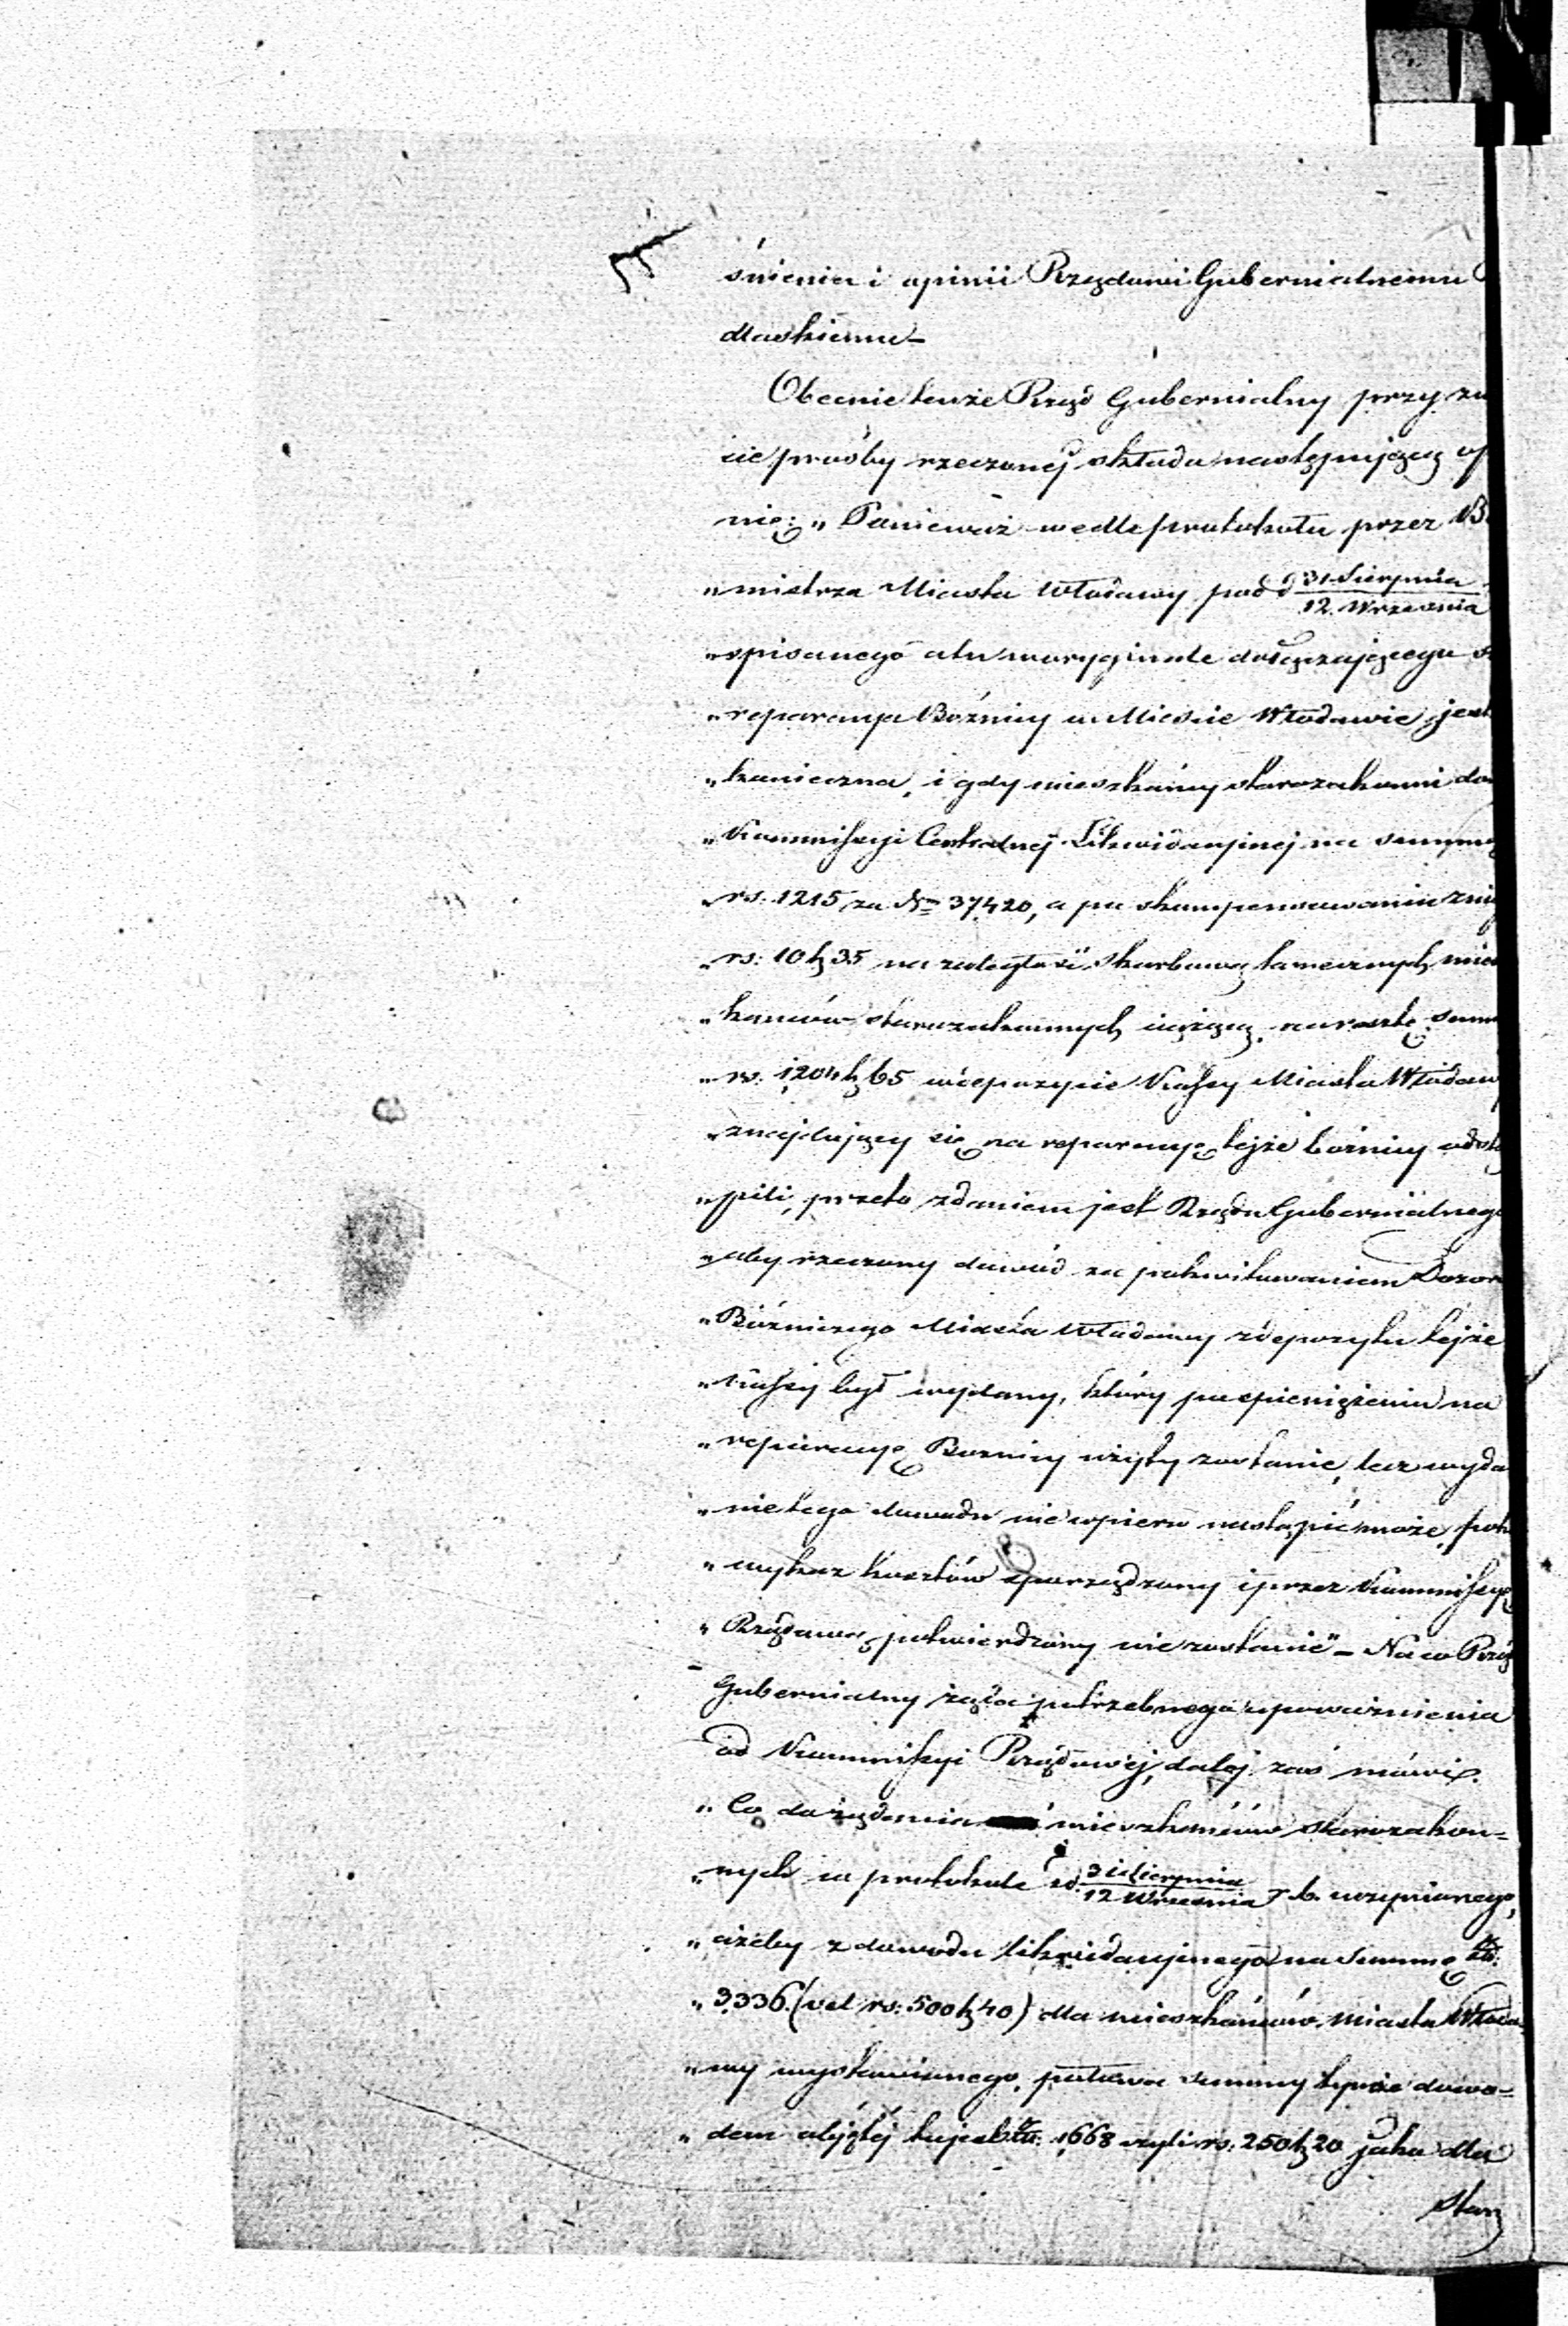 śnienia i opinii Rządowi Gubernialnemu
dlaskiemu –
Obecnie tenże Rząd Gubernialny przy
cie prośby rzeczonej składa następującą
nię: „Ponieważ wedle protokołu przez
„mistrza Miasta Włodawy pod d 31 Sierpnia / 12. Września
„spisanego a tu w oryginale dołączającego
„reparacya Bóżnicy w Mieście Włodawie, jest
„konieczna, i gdy mieszkańcy starozakonni
„Kommissyi Centralnej Likwidacyjnej na summę
„rs. 1215 za No 37420, a po skompensowaniu
„rs: 10 k 35 na zaległość skarbową tamecznych
„kańców starozakonnych ciążącą, na resztę
„rs. 1204 k 65 w depozycie Kassy Miasta
„znajdujący się na reparacyę tejże bóźnicy
„pili, przeto zdaniem jest Rządu Gubernialnego
„aby rzeczony dowód za pokwitowaniem Dozoru
„Bóźniczego Miasta Włodawy z depozytu tejże
„Kassy był wydany, który po spieniężeniu na
„reparacyę Bożnicy użyty zostanie, lecz wyda
„nie tego dowodu nie wpierw nastąpić może,
„wykaz kosztów sporządzony i przez Kommissyę
„Rządową potwierdzony nie zostanie" – Na co
Gubernialny żąda potrzebnego upoważnienia
od Kommissyi Rządowej, dalej zaś mówi.
„Co do żądania mieszkańców starozakon=
„nych w protokole z d. 31 Sierpnia / 12 Września r. b. uczynionego,
„ażeby z dowodu likwidacyjnego na Summę
„3336 (vel rs: 500 k 40) dla mieszkańców miasta Włoda
„wy wystawionego, połowa summy tymże dowo=
„dem objętej to jest 1668 czyli rs. 250 k 20 jako dla